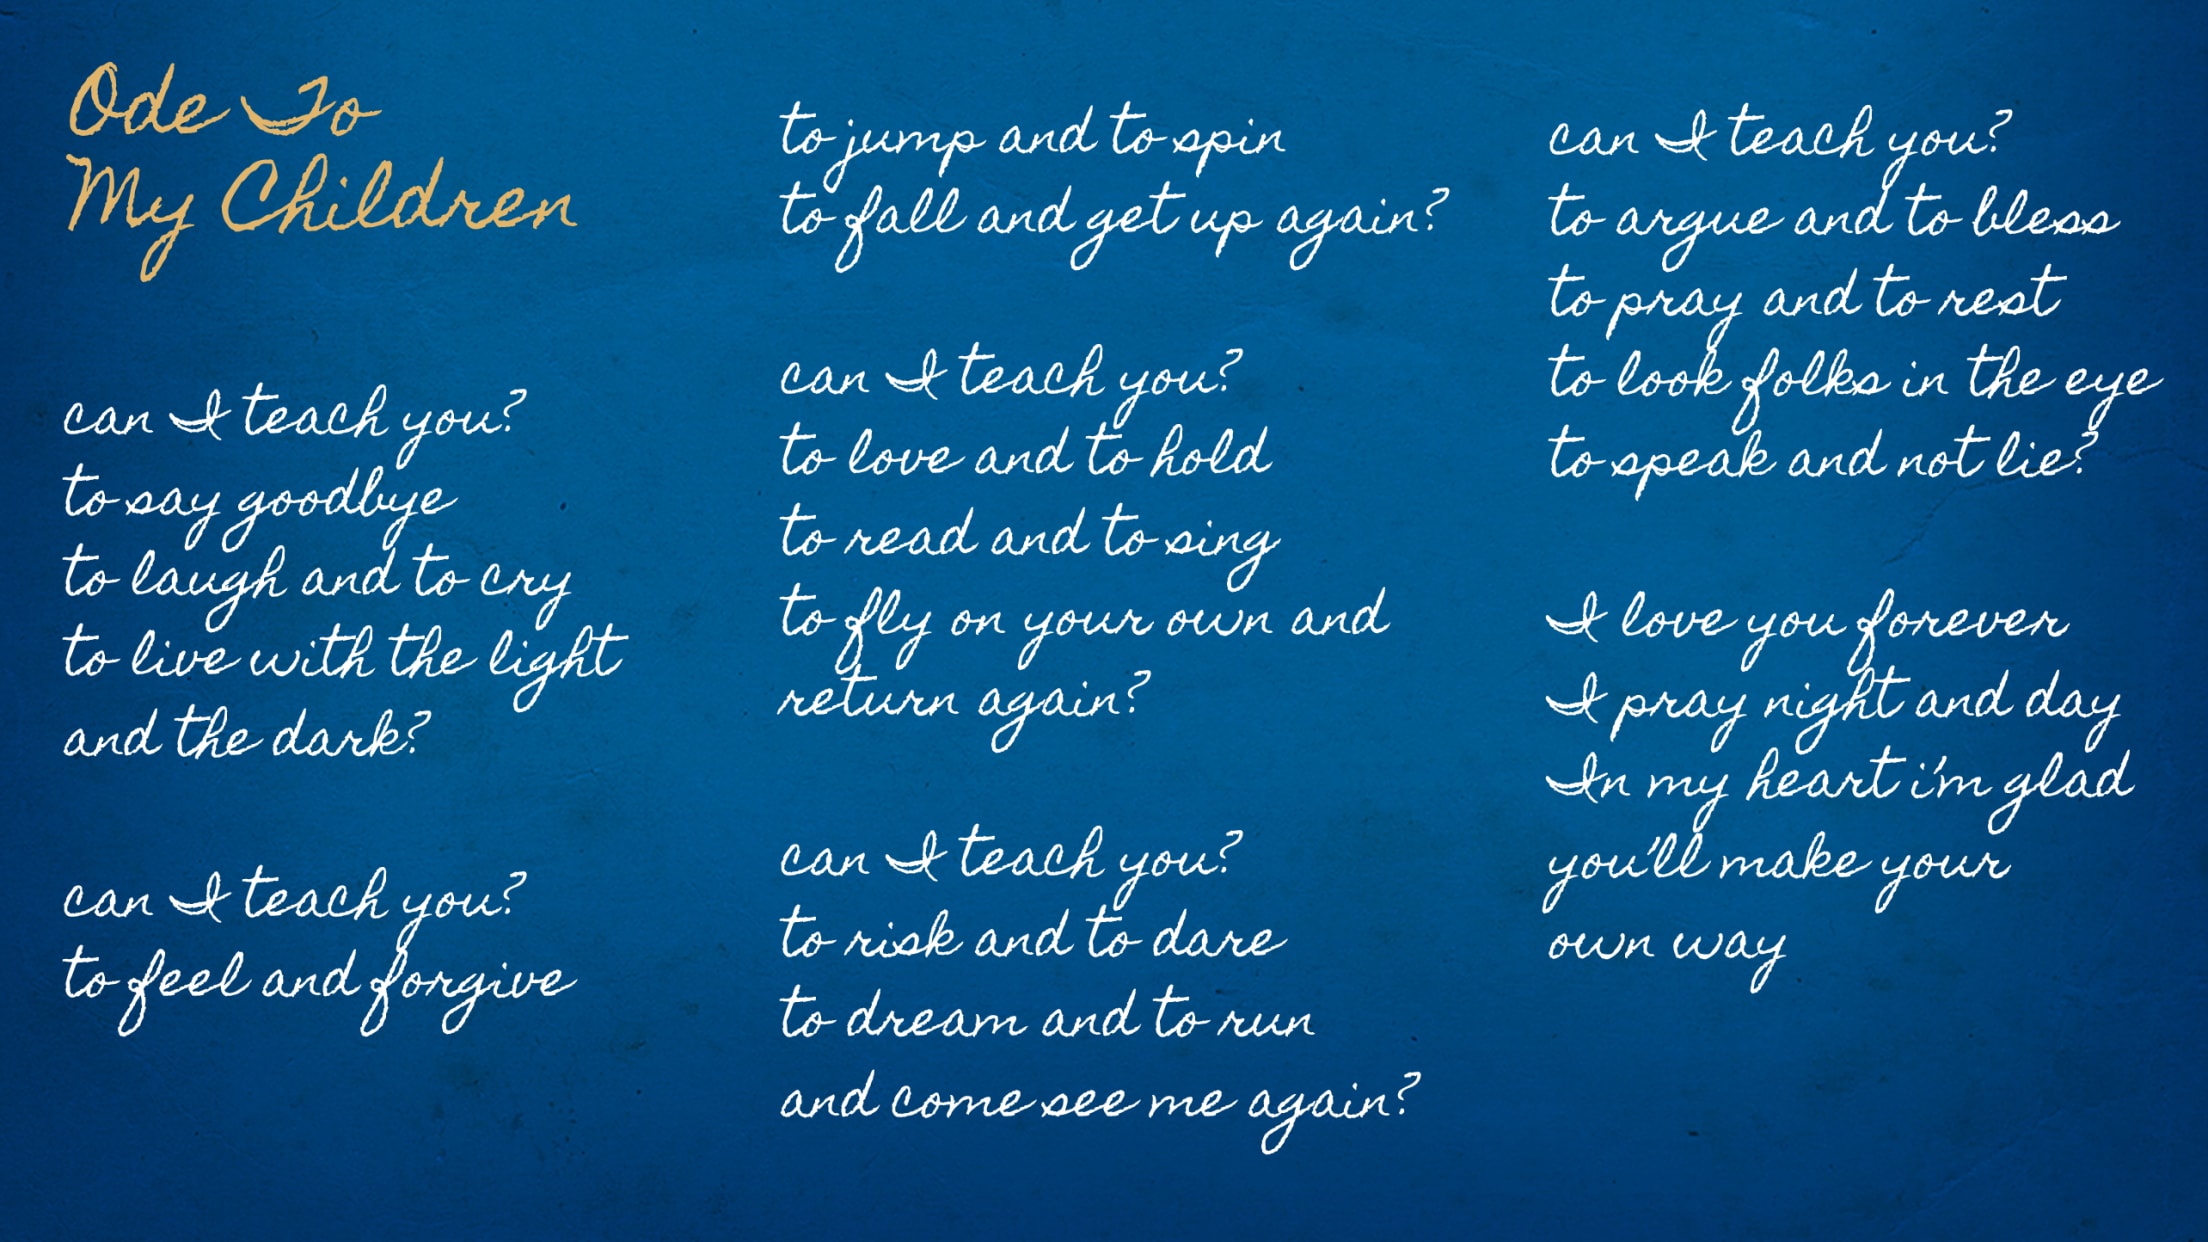 Ode To
My Children
can I teach you?
to say goodbye
to laugh and to cry
to live with the light
and the dark?
can I teach you?
to feel and forgive
to jump and to spin
to fall and get up again?
can I teach you?
to love and to hold
to read and to sing
to fly on your own and
return again?
can I teach you?
to risk and to dare
to dream and to run
and come see me again?
can I teach you?
to argue and to bless
to pray and to rest
to look folks in the eye
to speak and not lie?
I love you forever
I pray night and day
In my heart i'm glad
you'll make your
own way